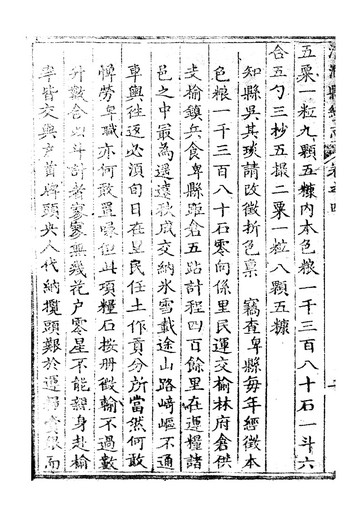 清澗縣續志 卷之四
五粟一粒九顆五糠內本色糧一千三百八十石一斗六
合五勺三抄五撮二粟一粒八顆五糠
知縣吳其琰請改徵折色稟 竊查卑縣每年經徵本
色糧一千三百八十石零向係里民運交榆林府倉供
支榆鎮兵食卑縣距倉五站計程四百餘里在運糧諸
邑之中最為遥遠秋成交納氷雪載途山路﨑嶇不通
車輿往返必須旬日在里民任土作貢分所當然何敢
憚勞卑職亦何敢置喙但此項糧石按册徵輸不過數
升數合以斗計者寥寥無幾花户零星不能親身赴榆
率皆交與户首牌頭央人代納攬頭艱於運 而